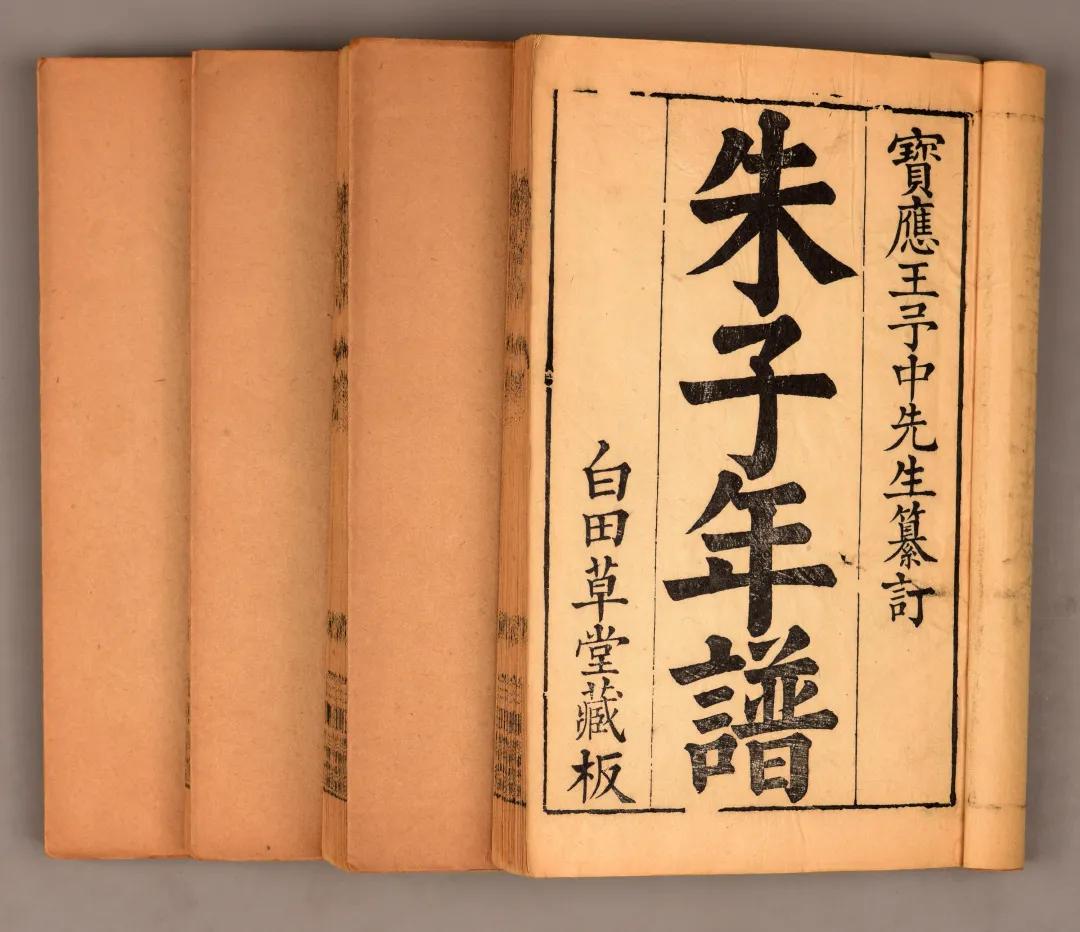 寶應王予中先生纂訂
朱子年譜
白田草堂藏板